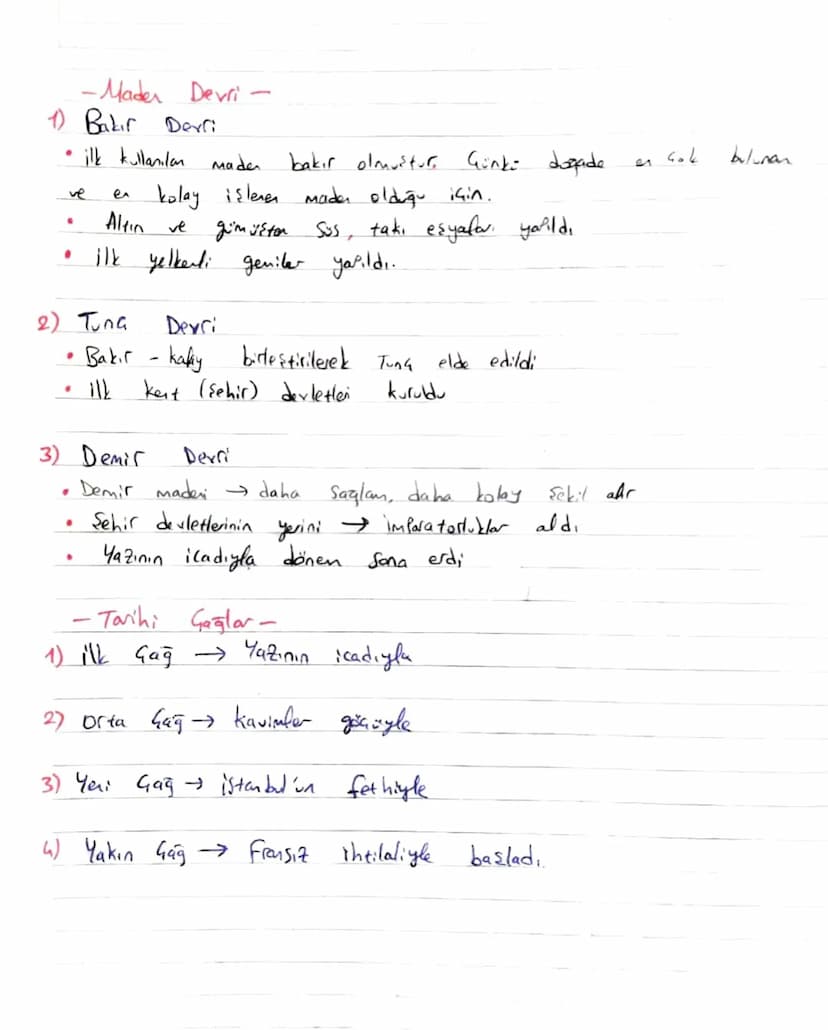 - Maden Devri -
1) Bakır Devri
• ilk kullanılan maden bakır olmuştur. Çünkü doğada en çok bulunan
ve en kolay işlenen maden olduğu için.
• Altın ve gümüşten süs, takı eşyaları yapıldı
• ilk yelkenli gemiler yapıldı.
2) Tunç Devri
• Bakır - kalay birleştirilerek Tunç elde edildi
• ilk kent (şehir) devletleri kuruldu
3) Demir Devri
• Demir madeni → daha sağlam, daha kolay şekil alır
• Şehir devletlerinin yerini → imparatorluklar aldı
• Yazının icadıyla dönem sona erdi
- Tarihi Çağlar -
1) ilk Çağ → Yazının icadıyla
2) Orta Çağ → kavimler göçüyle
3) Yeni Çağ → istanbul'un fethiyle
4) Yakın Çağ → Fransız ihtilaliyle başladı.